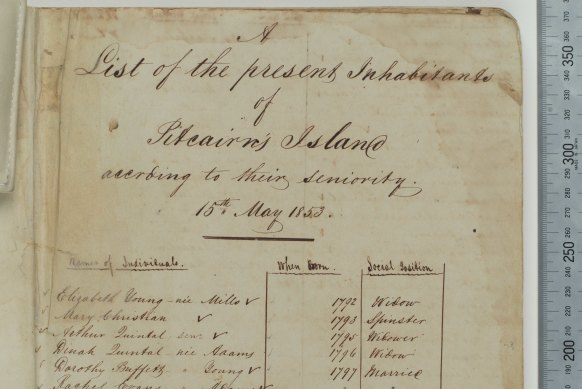 A
List of the present Inhabitants
of
Pitcairn's Island
according to their seniority.
15th May 1853.
Names of Individuals. When Born. Social Position
Elizabeth Young nee Mills ✓ 1792 Widow
Mary Christian ✓ 1793 Spinster
Arthur Quintal senr ✓ 1795 Widower
Dinah Quintal nee Adams 1796 Widow
Dorothy Buffett " Young ✓ 1797 Married
Rachel Evans
370
360
350
340
330
320
310
300
290
280
270
260
250
240
230
220
210
200
190